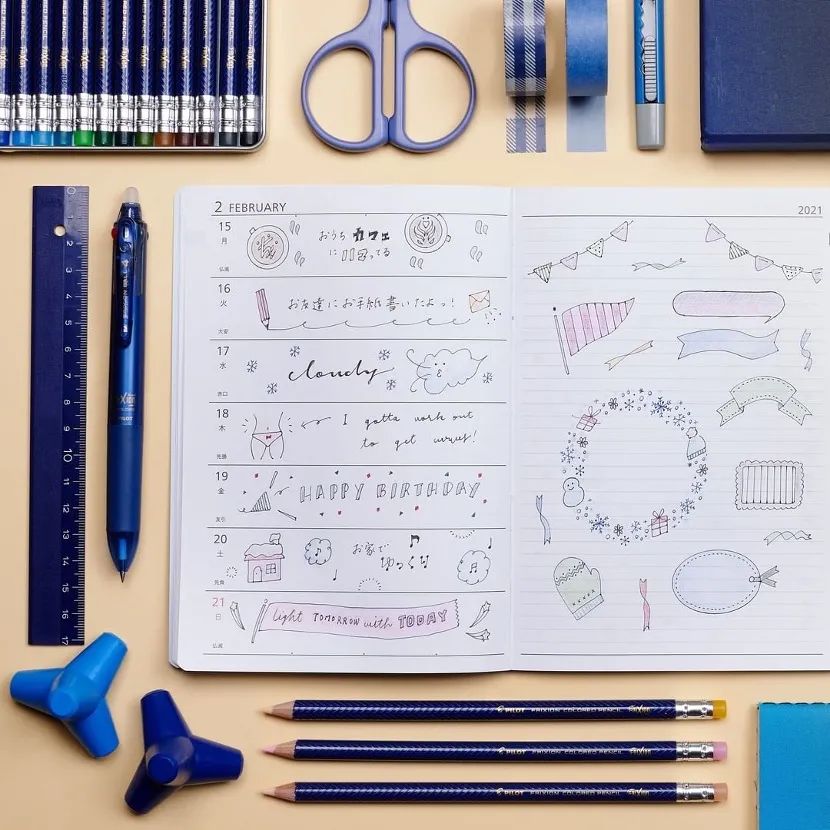 2 FEBRUARY
2021
15
月
おうち カフェ
に ハマってる
仏滅
16
火
お友達にお手紙書いたよっ!
大安
17
水
cloudy
赤口
18
木
I gotta work out
to get
先勝
19
金
HAPPY BIRTHDAY
友引
20
土
お家で
ゆっくり
先負
21
日
Light TOMORROW with TODAY
仏滅
0
2
3
4
5
6
7
8
9
10
11
12
13
14
15
16
17
FRIXION
PILOT
PILOT FRIXION COLORED PENCIL FRIXION
PILOT FRIXION COLORED PENCIL FRIXION
PILOT FRIXION COLORED PENCIL FRIXION